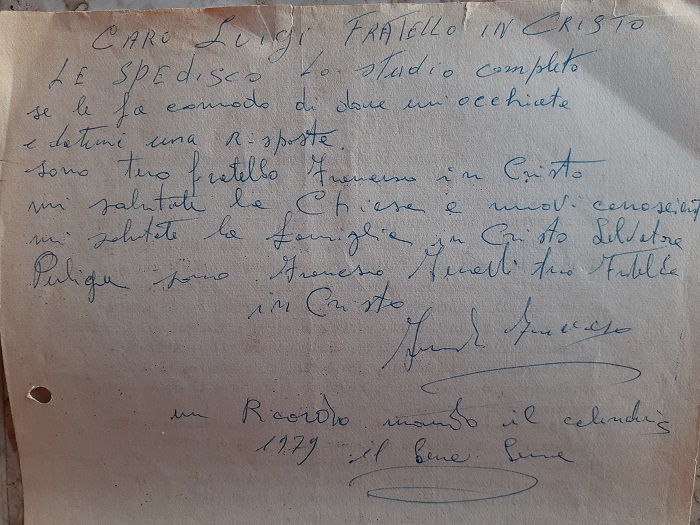 CARO LUIGI FRATELLO IN CRISTO
LE SPEDISCO Lo studio completo
se le fa comodo di dare un'occhiata
e datemi una Risposta.
sono tuo fratello Francesco in Cristo
mi salutate la Chiesa e nuovi
mi salutate la famiglia in Cristo Salvatore
sono Francesco tuo Fratello
in Cristo
Francesco
un Ricordo mando il
1979 il bene